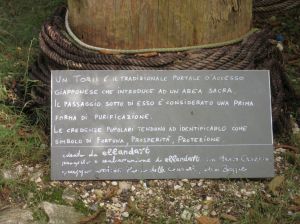 UN TORII È IL TRADIZIONALE PORTALE D'ACCESSO
GIAPPONESE CHE INTRODUCE AD UN AREA SACRA.
IL PASSAGGIO SOTTO DI ESSO È CONSIDERATO UNA PRIMA
FORMA DI PURIFICAZIONE.
LE CREDENZE POPOLARI TENDONO AD IDENTIFICARLO COME
SIMBOLO DI FORTUNA, PROSPERITÀ, PROTEZIONE
ideato da ellandart
progetto e realizzazione di ellandart